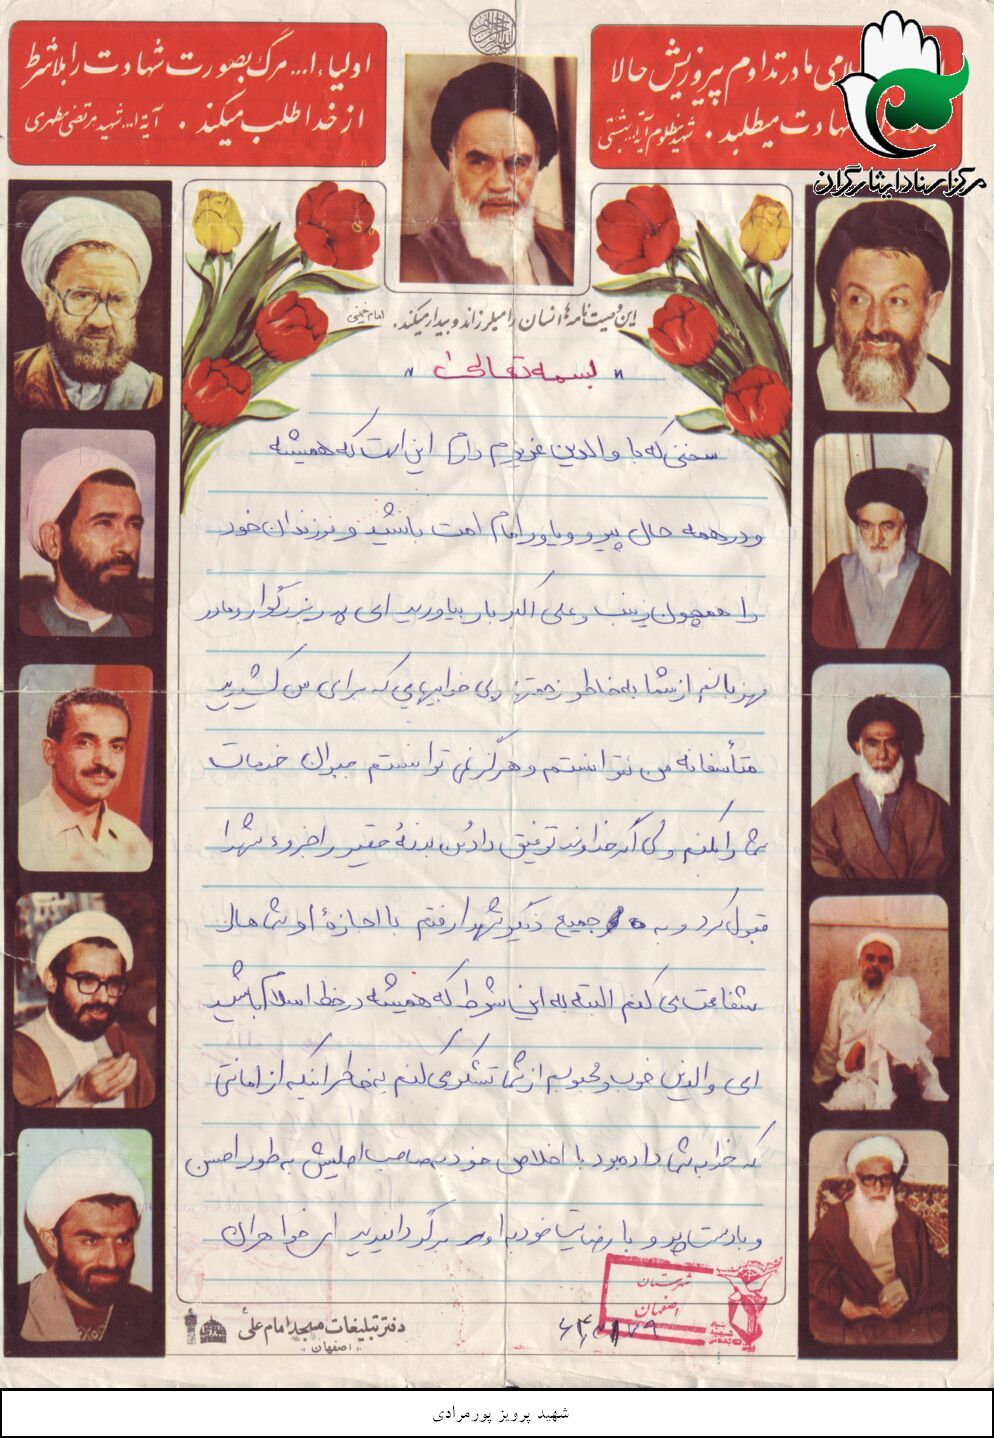 اولیاء ا... مرگ بصورت شهادت را بلاشرط
از خدا طلب میکند . آیة ا... شهید مرتضی مطهری
ما در تداوم پیروزیش حالا
شهادت میطلبد . شهید مظلوم آیة ا... بهشتی
مرکز اسناد ایثارگران
این وصیت نامه ها انسان را میلرزاند و بیدار میکند. امام خمینی
" بسمه تعالی "
سخنی که با والدین عزیزم دارم این است که همیشه
و در همه حال پیرو و یاور امام امت باشید و فرزندان خود
را همچون زینب و علی اکبر بار بیاورید ای پدر بزرگوار و مادر
مهربانم از شما به خاطر زحمتها و بی خوابیهایی که برای من کشیدید
متأسفانه من نتوانستم و هرگز نمی توانستم جبران خدمات
شما را بکنم ولی اگر خداوند توفیق داد و این بندۀ حقیر را جزوء شهدا
قبول کرد و به جمیع دیگر شهدا رفتم با اجازۀ او شماها را
شفاعت می کنم البته به این شرط که همیشه در خط اسلام باشید
ای والدین خوب و محبوبم از شما تشکر می کنم به خاطر اینکه از امانتی
که خدا به شما داده بود با اخلاص خود به صاحب اصلیش به طور احسن
و با دست پر و با رضایت خود به او برگردانیدید ای خواهران
دفتر تبلیغات مسجد امام علی
" اصفهان "
شهرستان
اصفهان
شهید پرویز پورمرادی